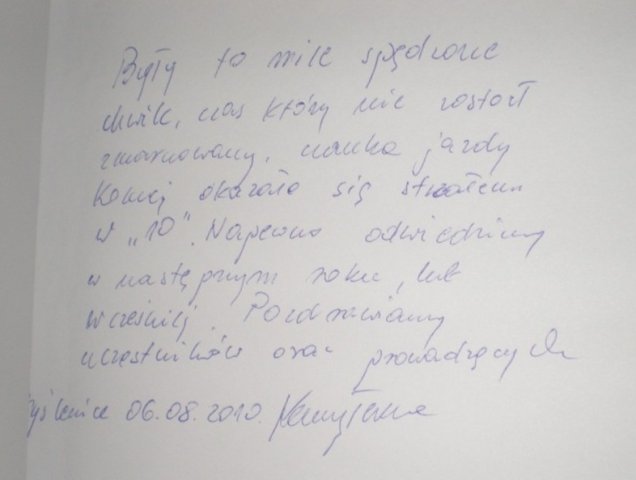 Były to mile spędzone
chwile, czas który nie został
zmarnowany, nauka jazdy
konnej okazało się strzałem
w „10". Napewno odwiedzimy
w następnym roku, lub
wcześniej. Pozdrawiamy
uczęstników oraz prowadzących
06.08.2010.